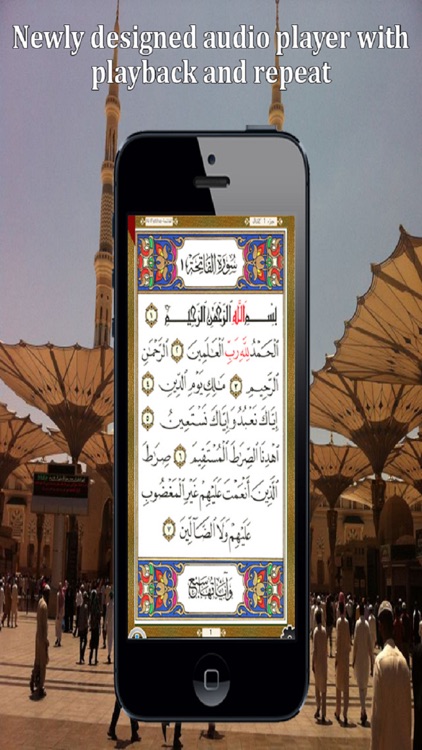 Newly designed audio player with
playback and repeat
Juz' 1
سُورَةُ الْفَاتِحَةِ ١
بِسْمِ اللَّهِ الرَّحْمَٰنِ الرَّحِيمِ ١
الْحَمْدُ لِلَّهِ رَبِّ الْعَٰلَمِينَ ٢ الرَّحْمَٰنِ
الرَّحِيمِ ٣ مَٰلِكِ يَوْمِ الدِّينِ ٤
إِيَّاكَ نَعْبُدُ وَإِيَّاكَ نَسْتَعِينُ ٥
اهْدِنَا الصِّرَٰطَ الْمُسْتَقِيمَ ٦ صِرَٰطَ
الَّذِينَ أَنْعَمْتَ عَلَيْهِمْ غَيْرِ الْمَغْضُوبِ
عَلَيْهِمْ وَلَا الضَّآلِّينَ ٧
وَآيَاتُهَا سَبْعٌ
1